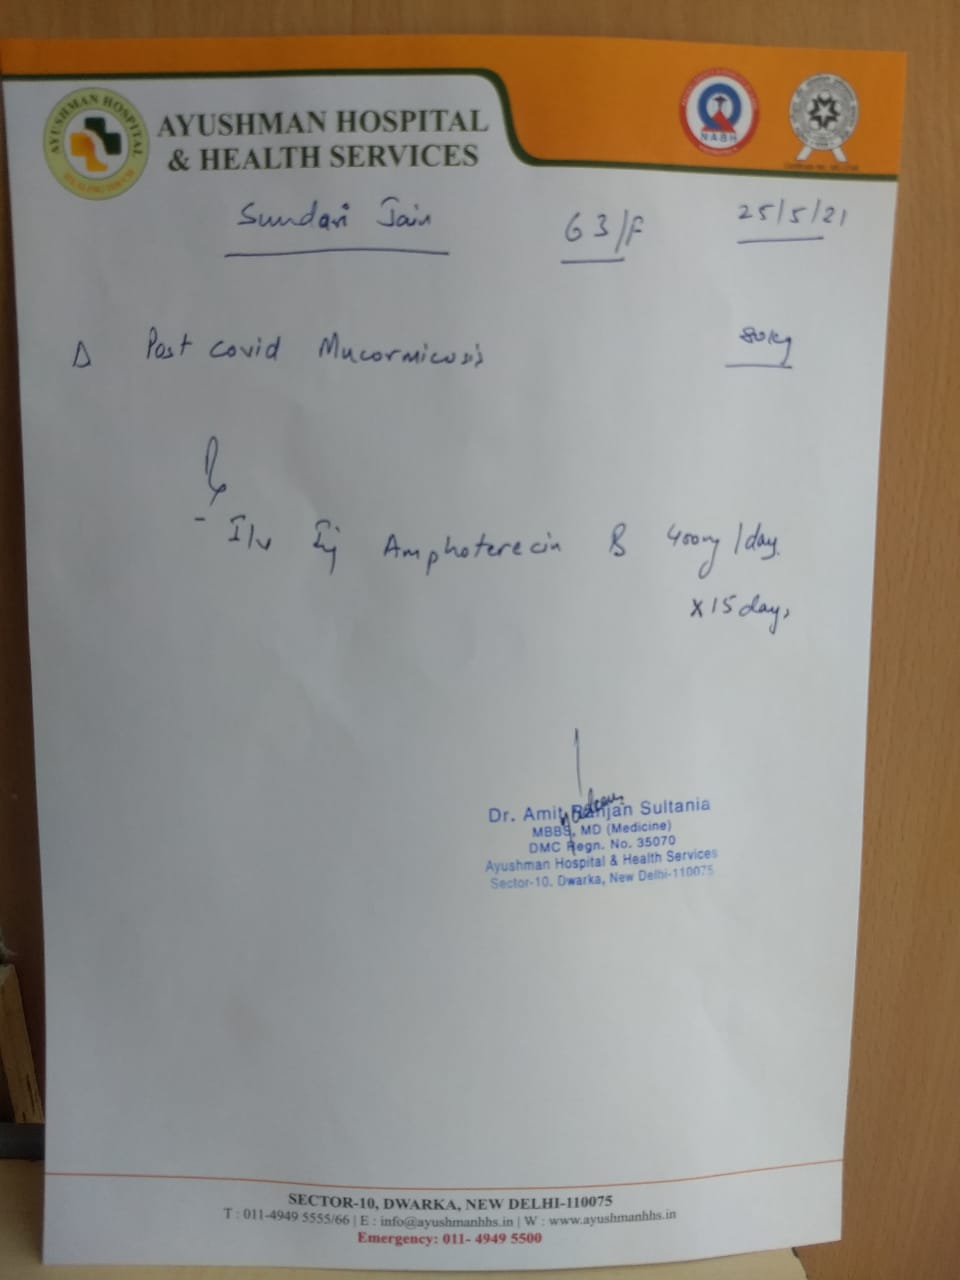 AYUSHMAN HOSPITAL
& HEALTH SERVICES
AYUSHMAN HOSPITAL
NABH
Sundari Jain 63/F 25/5/21
Δ Post covid Mucormicosis 80kg
Rx
- I/v Inj Amphoterecin B 400mg/day
x 15 days
Dr. Amit Ranjan Sultania
MBBS, MD (Medicine)
DMC Regn. No. 35070
Ayushman Hospital & Health Services
Sector-10, Dwarka, New Delhi-110075
SECTOR-10, DWARKA, NEW DELHI-110075
T : 011-4949 5555/66 | E : info@ayushmanhhs.in | W : www.ayushmanhhs.in
Emergency: 011- 4949 5500